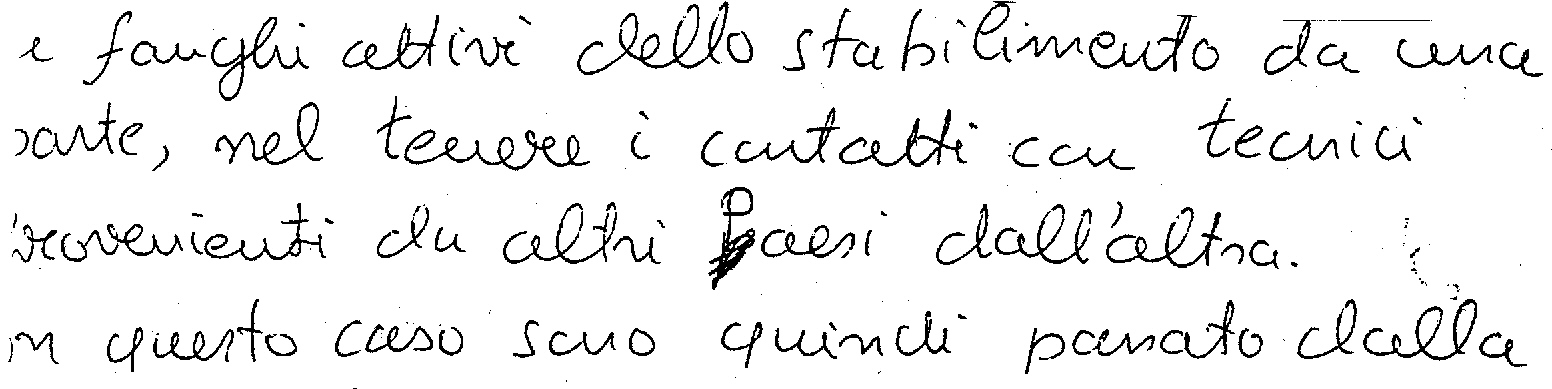 e fanghi attivi dello stabilimento da una
parte, nel tenere i contatti con tecnici
provenienti da altri Paesi dall'altra.
In questo caso sono quindi passato dalla